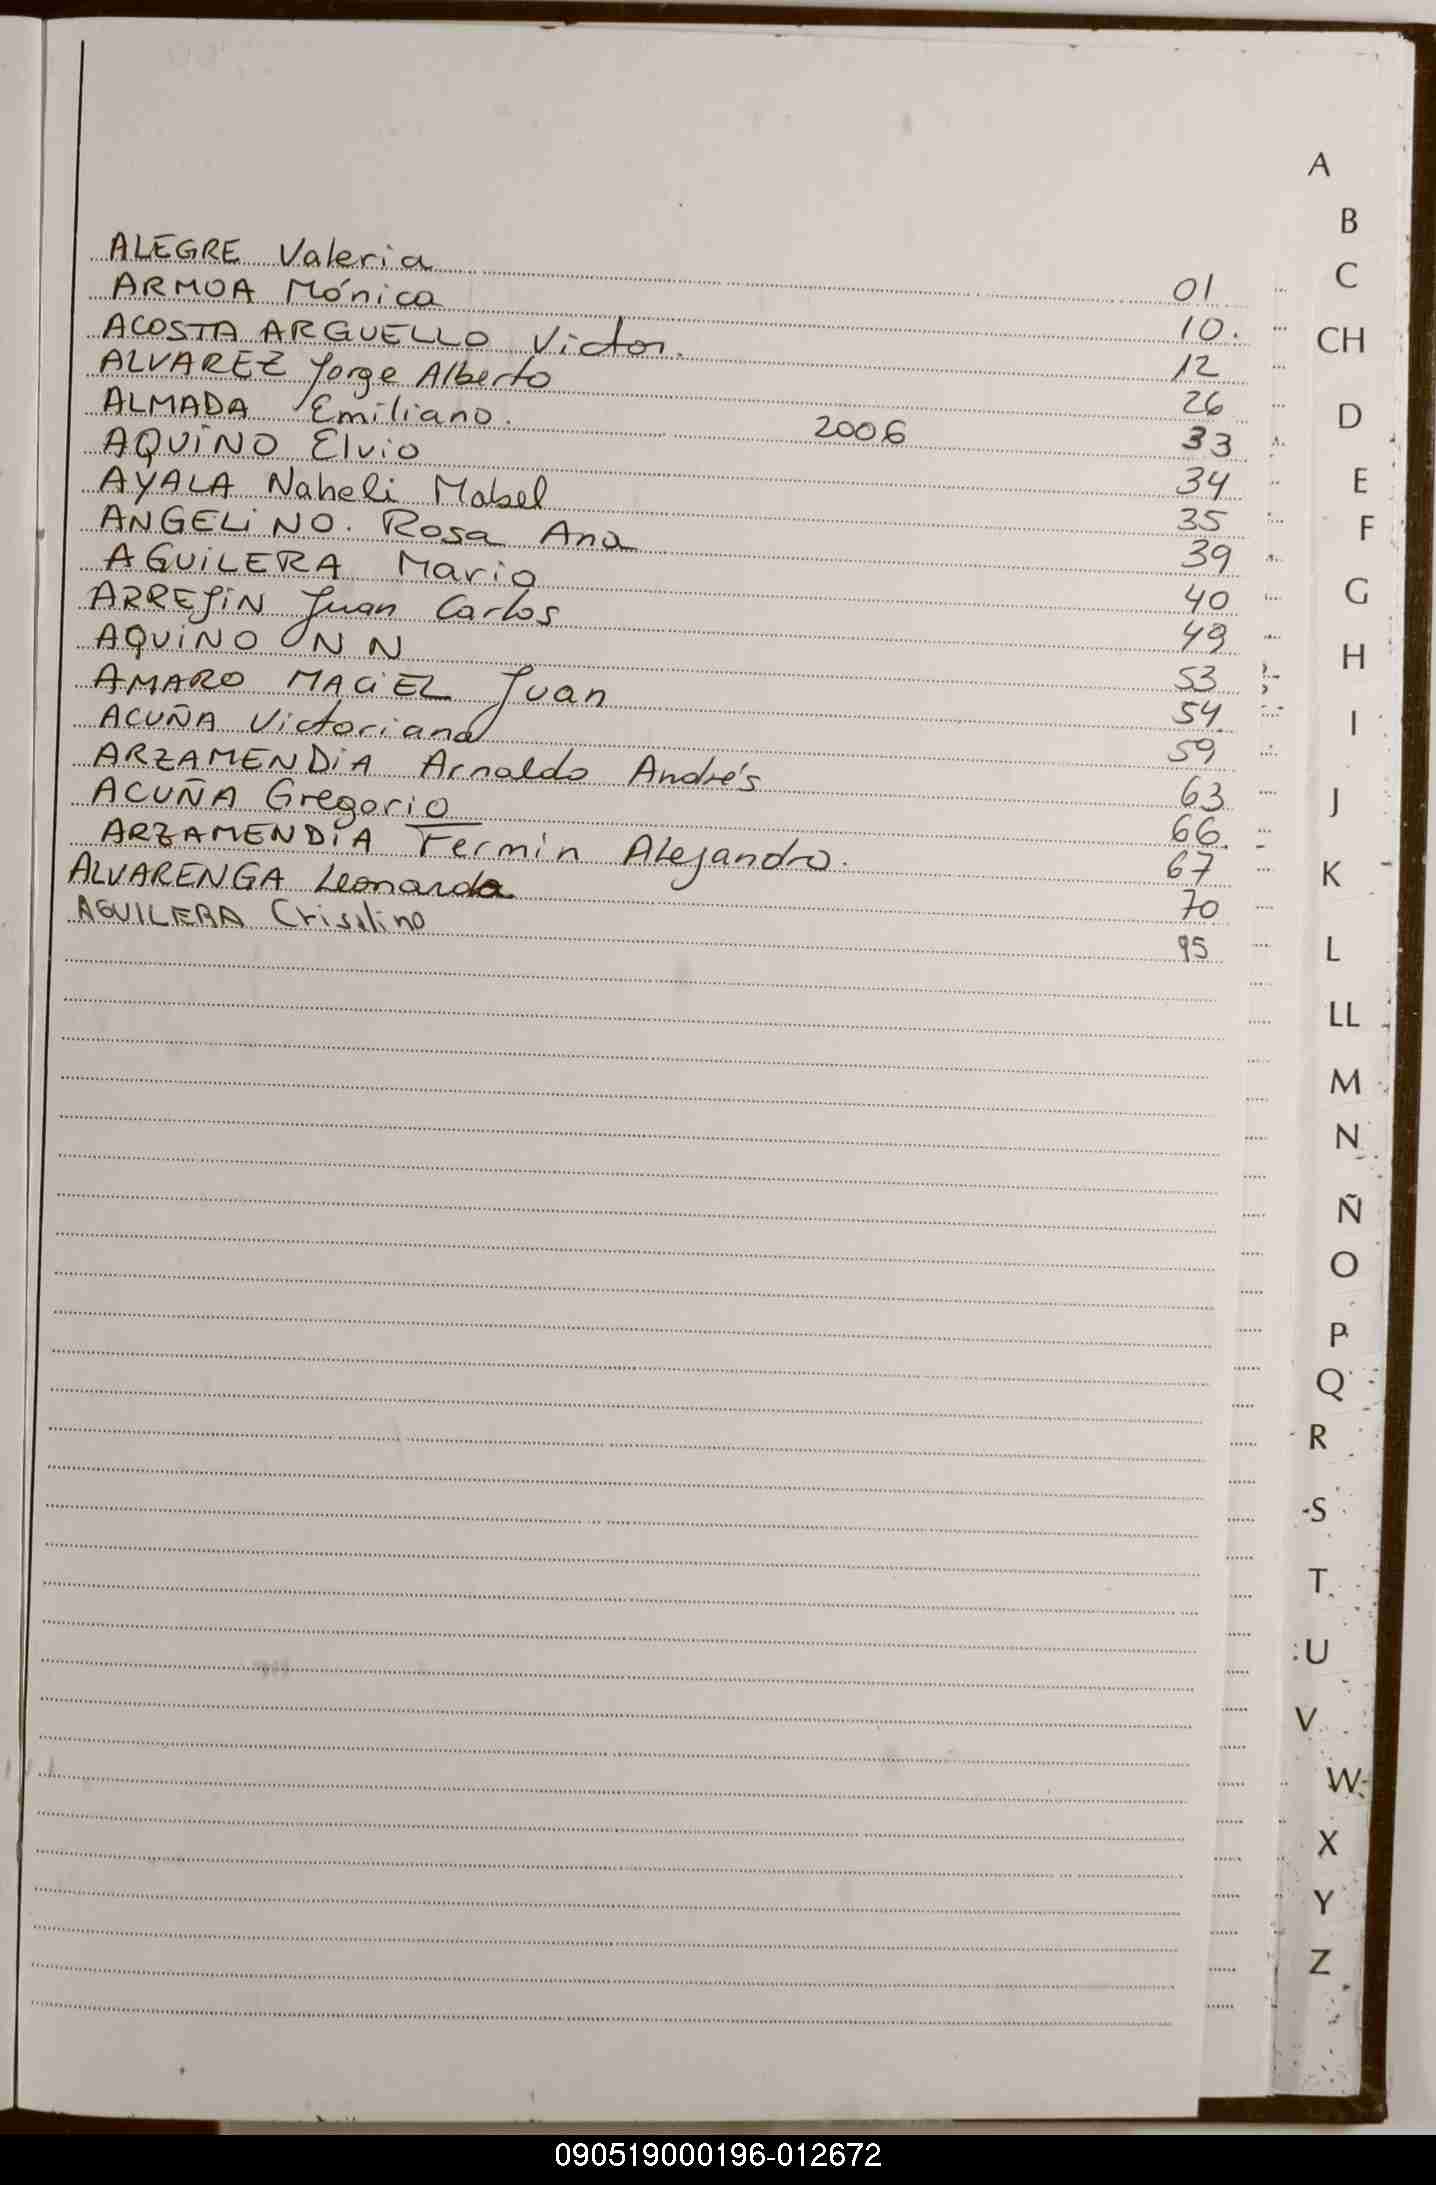 ALEGRE Valeria 01
ARMOA Mónica 10.
ACOSTA ARGUELLO Victor. 12
ALVAREZ Jorge Alberto 26
ALMADA Emiliano. 2006 33
AQUINO Elvio 34
AYALA Naheli Mabel 35
ANGELINO. Rosa Ana 39
AGUILERA Mario 40
ARREJIN Juan Carlos 49
AQUINO N N 53
AMARO MACIEL Juan 54
ACUÑA Victoriana 59
ARZAMENDIA Arnaldo Andrés 63
ACUÑA Gregorio 66
ARZAMENDIA Fermin Alejandro. 67
ALVARENGA Leonarda 70
AGUILERA Crisolino 95
A
B
C
CH
D
E
F
G
H
I
J
K
L
LL
M
N
Ñ
O
P
Q
R
S
T
U
V
W
X
Y
Z
090519000196-012672